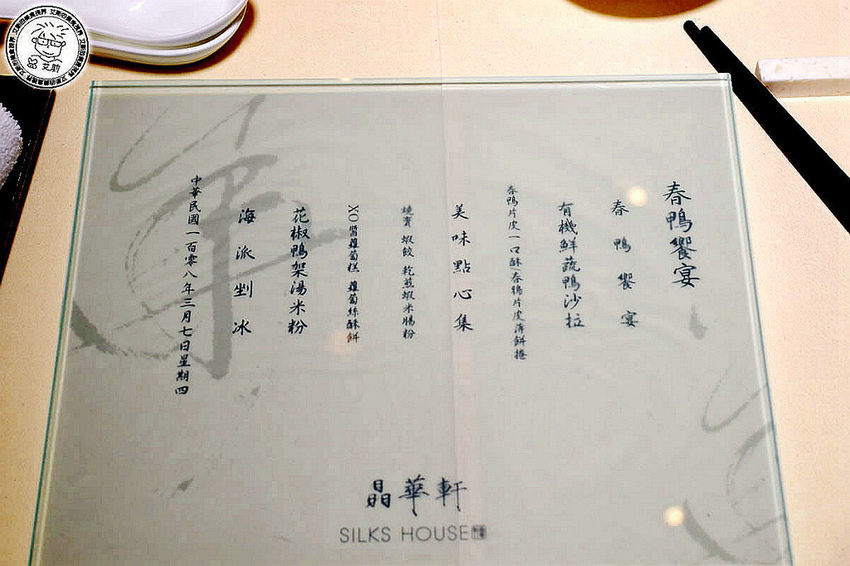 春鴨饗宴
春鴨饗宴
有機鮮蔬鴨沙拉
春鴨片皮一口酥/春鴨片皮薄餅捲
美味點心集
燒賣 蝦餃 乾煎蝦米腸粉
XO醬蘿蔔糕 蘿蔔絲酥餅
花椒鴨架湯米粉
海派剉冰
中華民國一百零八年三月七日星期四
晶華軒
SILKS HOUSE